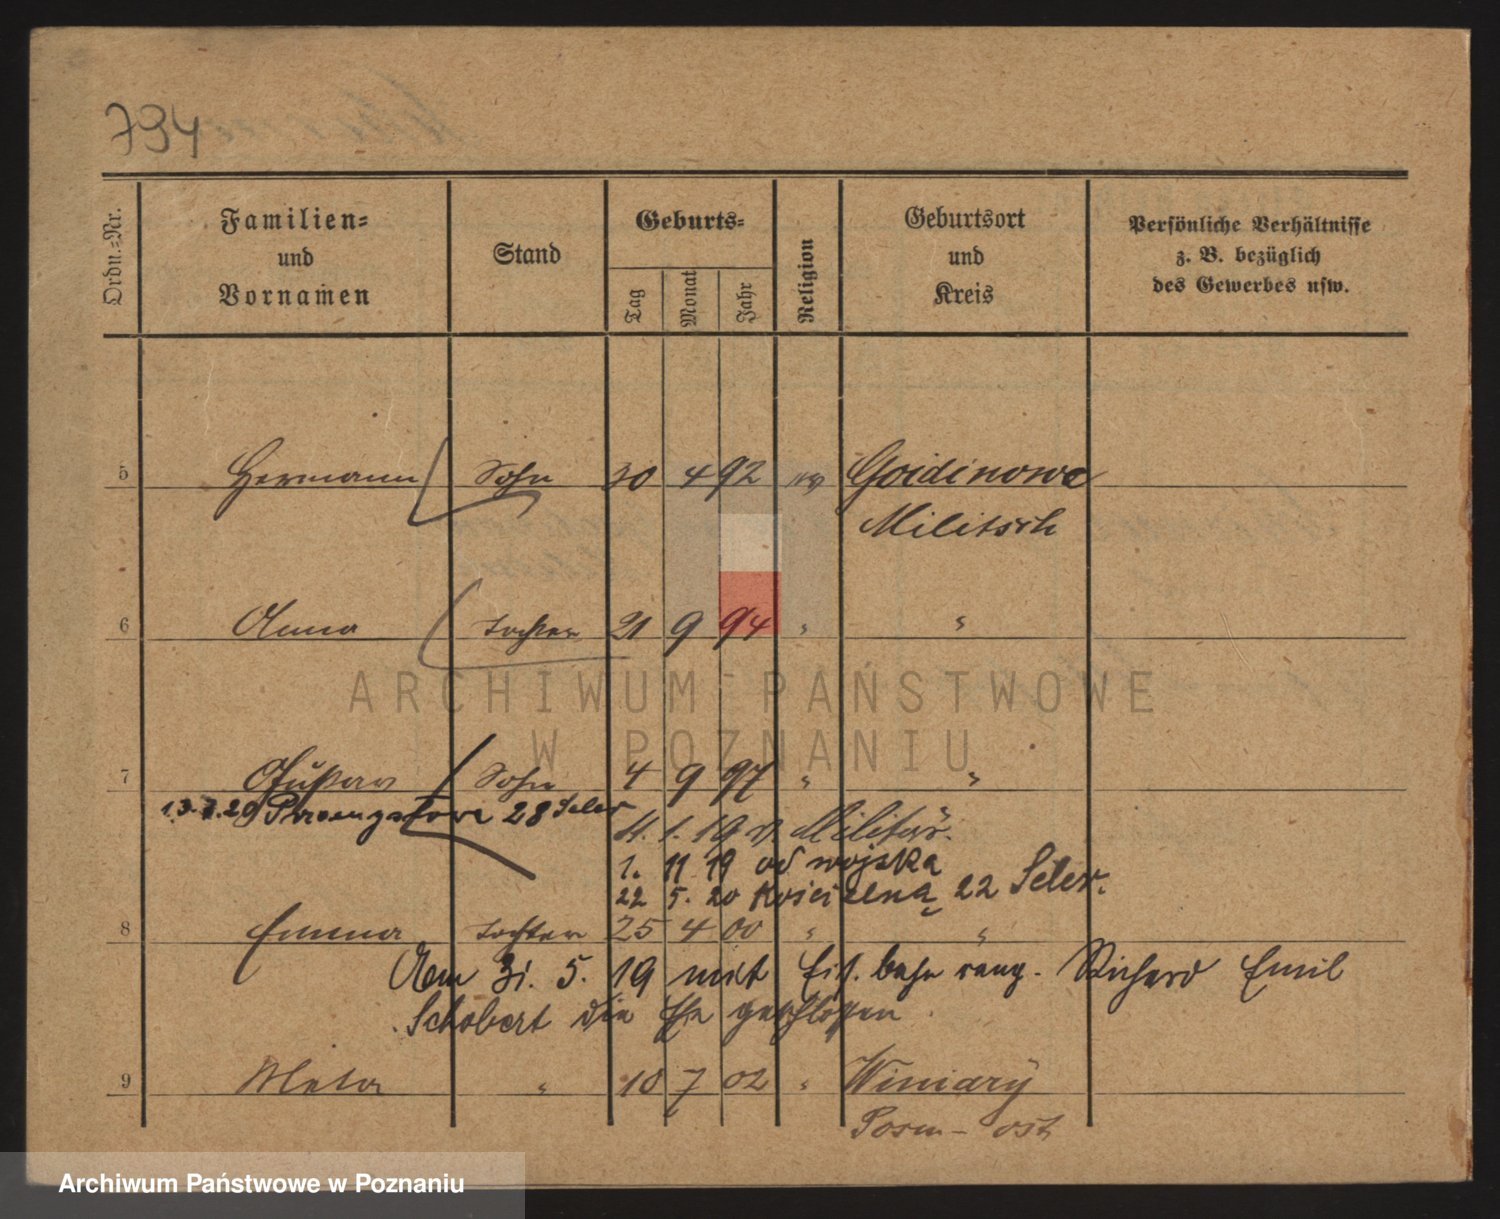 794
Ordn.=Nr.
Familien=
und
Vornamen
Stand
Geburts=
Tag
Monat
Jahr
Religion
Geburtsort
und
Kreis
Persönliche Verhältnisse
z. B. bezüglich
des Gewerbes usw.
5 Hermann Sohn 30 4 92 Goidinowe
Militsch
6 Anna Tochter 21 9 94 " "
ARCHIWUM PAŃSTWOWE
W POZNANIU
7 Gustav Sohn 4 9 97 " "
13.7.29 28
11. 1. 19 v. Militär.
1. 11 19 od wojska
22 5. 20 Kościelna 22 Seler.
8 Emma Tochter 25 4 00 " "
Am 31. 5. 19 mit Richard Emil
Schobert die Ehe geschlossen
9 Meta " 10 7 02 " Winiary
Posen - ost
Archiwum Państwowe w Poznaniu